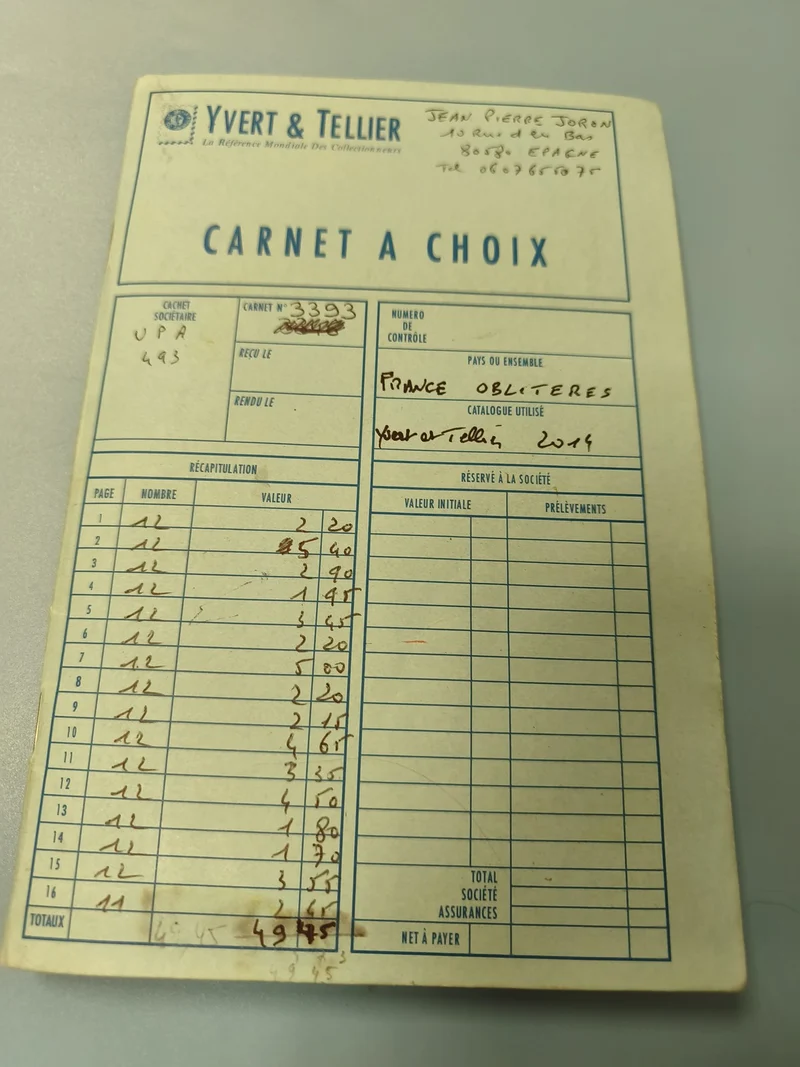 YVERT & TELLIER
La Référence Mondiale Des Collectionneurs
JEAN PIERRE JORON
10 Rue d en Bas
80580 EPAGNE
Tel
CARNET A CHOIX
CACHET
SOCIÉTAIRE
UPA
493
CARNET N° 3393
REÇU LE
RENDU LE
NUMERO
DE
CONTRÔLE
PAYS OU ENSEMBLE
FRANCE OBLITERES
CATALOGUE UTILISÉ
Yvert et Tellier 2014
RÉCAPITULATION
PAGE NOMBRE VALEUR
1 12 2 20
2 12 5 40
3 12 2 90
4 12 1 95
5 12 3 45
6 12 2 20
7 12 5 00
8 12 2 20
9 12 2 15
10 12 4 65
11 12 3 35
12 12 4 50
13 12 1 80
14 12 1 70
15 12 3 55
16 11 2
TOTAUX 49 45
49 45
RÉSERVÉ À LA SOCIÉTÉ
VALEUR INITIALE PRÉLÈVEMENTS
TOTAL
SOCIÉTÉ
ASSURANCES
NET À PAYER